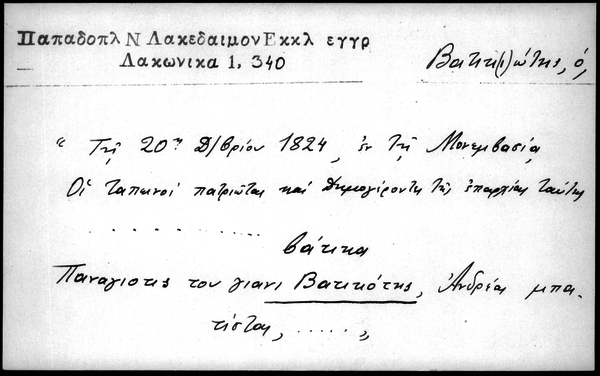 Παπαδοπλ Ν Λακεδαιμον Εκκλ εγγρ
Λακωνικα 1, 340
Βατικ(ι)ώτης, ό,
“ Τῇ 20ῃ Δ/βρίου 1824, ἐν τῇ Μονεμβασίᾳ
Οἱ ταπινοί πατριῶται καί Δημογέροντες τῆς ἐπαρχίας ταύτης
. . . . . . . . . . . . . .
Βάτικα
Παναγιοτις του γιανι Βατικότης, Ἀνδρέας μπα-
τίστας, ..... „